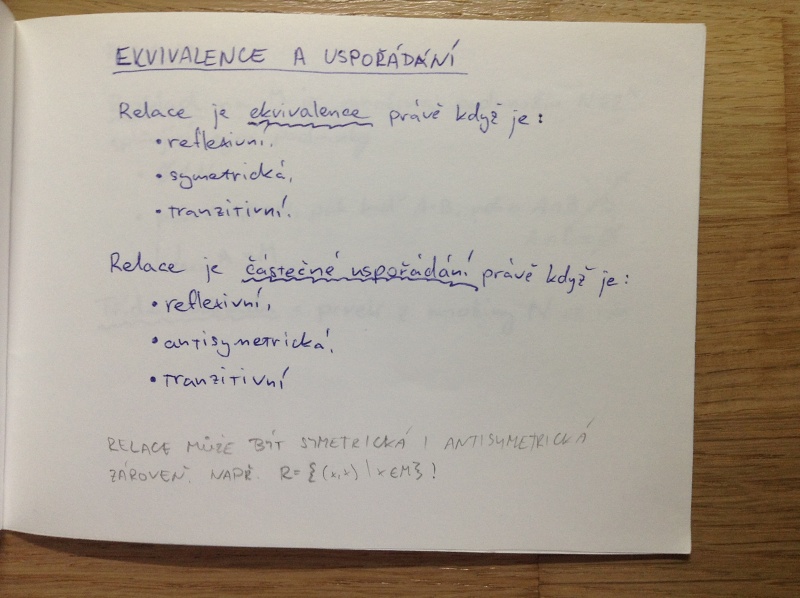 EKVIVALENCE A USPOŘÁDÁNÍ
Relace je ekvivalence právě když je:
• reflexivní,
• symetrická,
• tranzitivní.
Relace je částečné uspořádání právě když je:
• reflexivní,
• antisymetrická,
• tranzitivní
RELACE MŮŽE BÝT SYMETRICKÁ I ANTISYMETRICKÁ
ZÁROVEŇ. NAPŘ. R = {(x,x) | x ∈ M} !